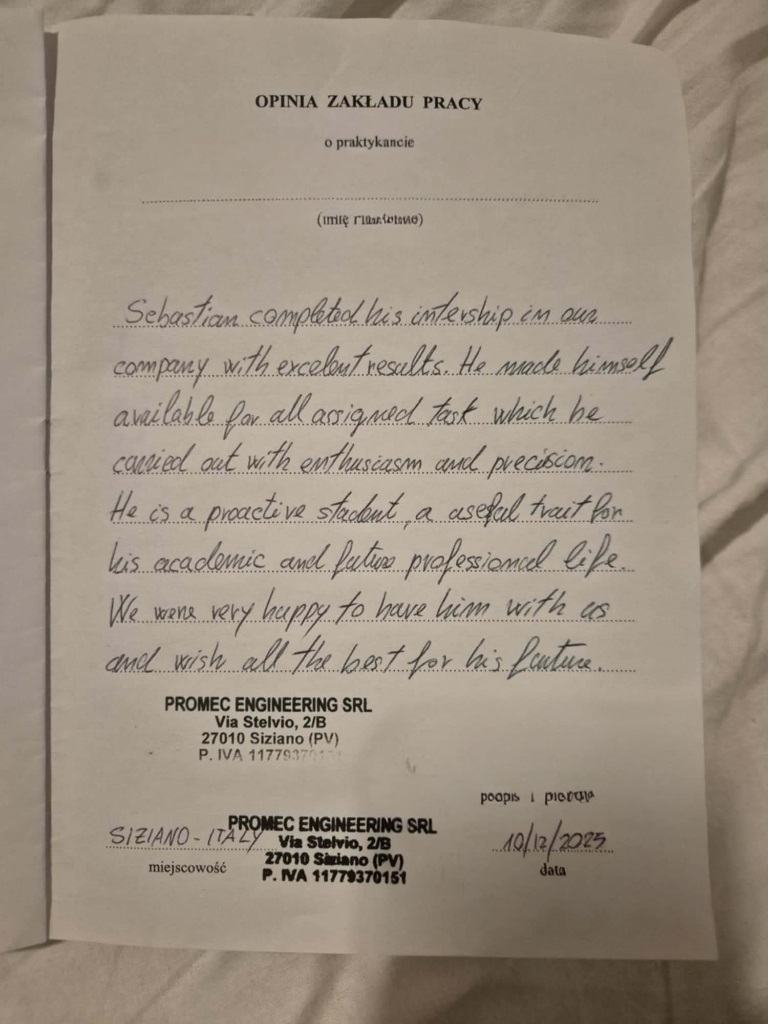 OPINIA ZAKŁADU PRACY
o praktykancie
(imię
Sebastian completed his intership in our
company with excelent results. He made himself
available for all assigned task which he
carried out with enthusiasm and precision.
He is a proactive student, a useful trait for
his academic and future professional life.
We were very happy to have him with us
and wish all the best for his future.
PROMEC ENGINEERING SRL
Via Stelvio, 2/B
27010 Siziano (PV)
P. IVA 11779370151
SIZIANO - ITALY
miejscowość
PROMEC ENGINEERING SRL
Via Stelvio, 2/B
27010 Siziano (PV)
P. IVA 11779370151
podpis i
10/12/2025
data